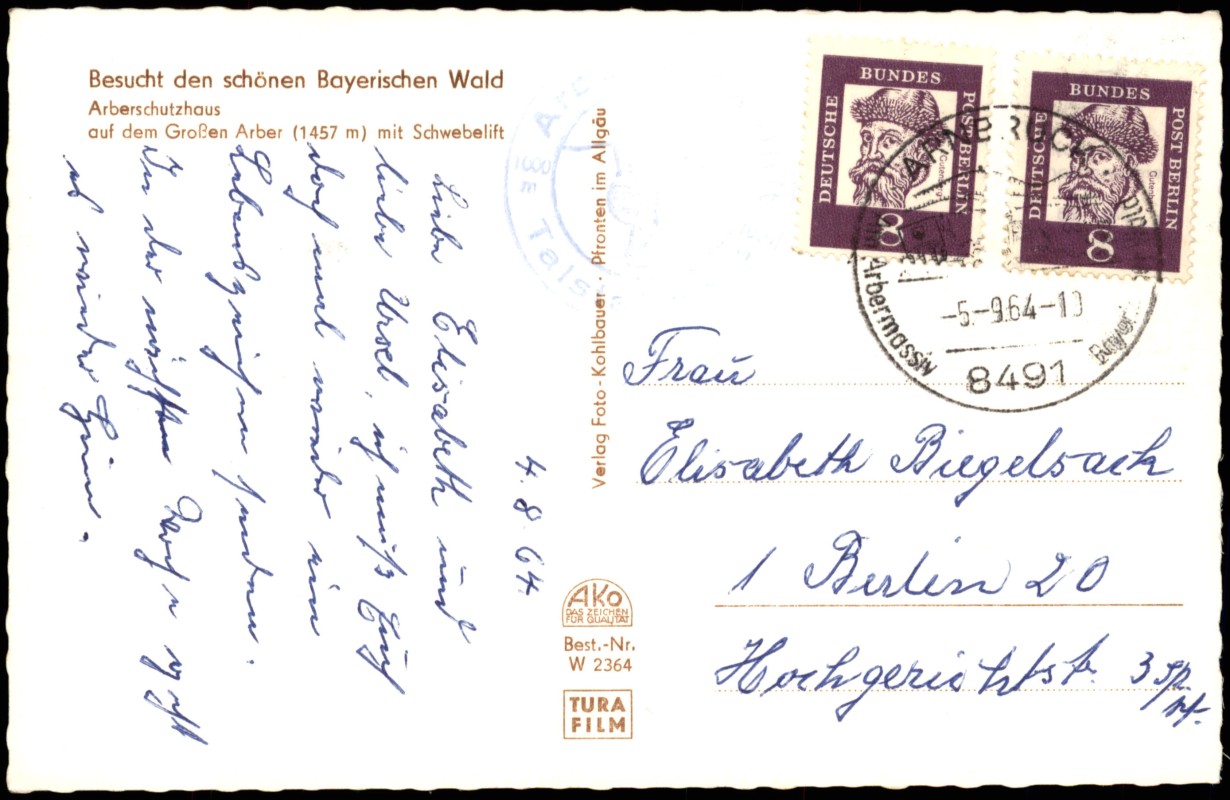 Besucht den schönen Bayerischen Wald
Arberschutzhaus
auf dem Großen Arber (1457 m) mit Schwebelift
4. 8. 64.
Liebe Elisabeth und
liebe Ursel, ich muß Euch
doch mal wieder ein
Lebenszeichen senden.
In der nächsten Woche geht
es wieder Heim.
Verlag Foto-Kohlbauer · Pfronten im Allgäu
AKO
DAS ZEICHEN
FÜR QUALITÄT
Best.-Nr.
W 2364
TURA
FILM
DEUTSCHE
BUNDES
POST BERLIN
Gutenberg
8
DEUTSCHE
BUNDES
POST BERLIN
8
ARNBRUCK
am Arbermassiv
Bayer.
-5.-9.64-10
8491
1600 m Tals
Frau
Elisabeth Biegelsack
1 Berlin 20
Hochgerichtstr. 3